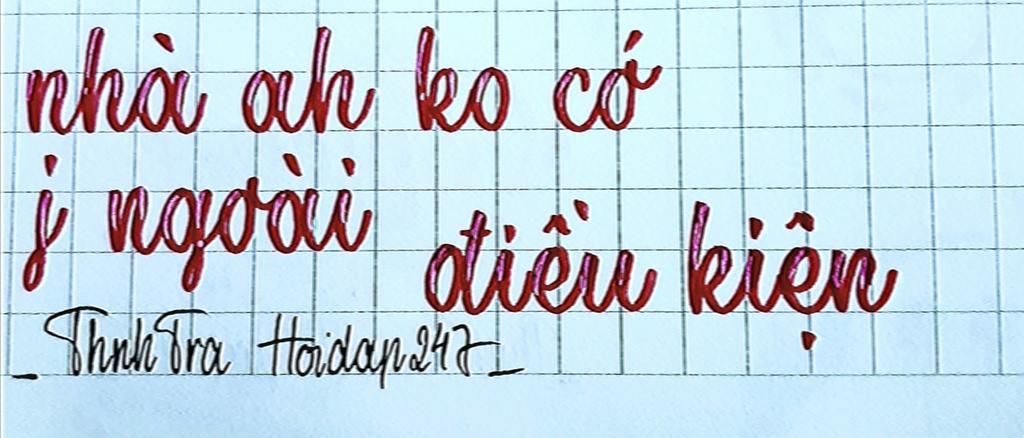 nhà ah ko có
j ngoài
điều kiện
_ ThnhTra Hoidap247 _